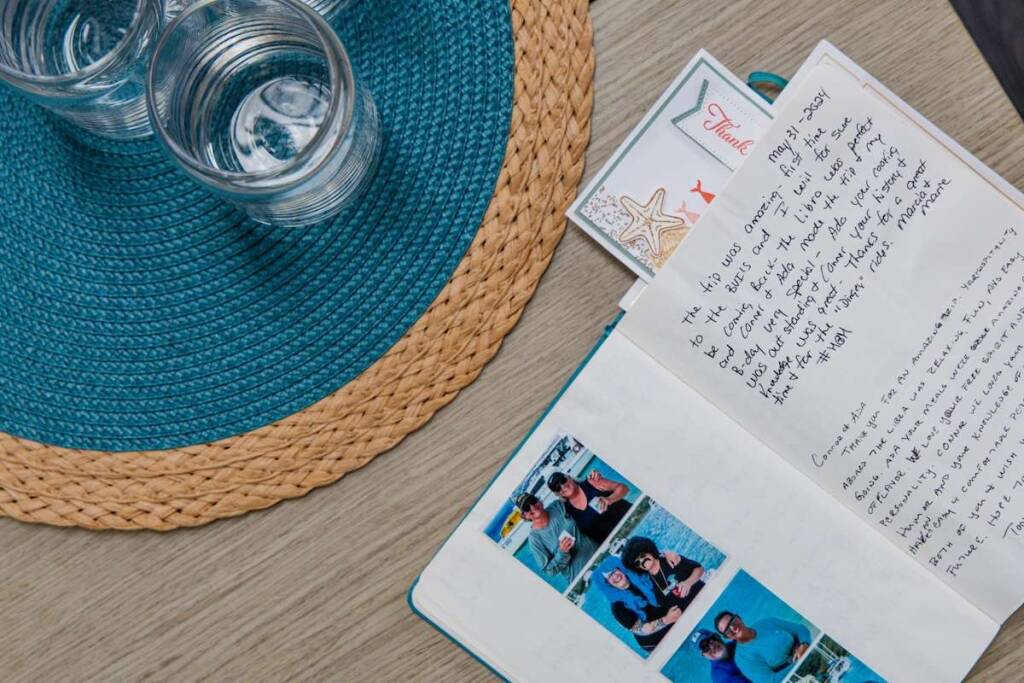 Thank
May 31 - 2024
The trip was amazing - first time
to the BVI's and I will for sure
be coming back - the Libra was perfect
and Conner & Ada made the trip & my
B-day very special - Ada your cooking
was outstanding & Conner your history &
knowledge was great - Thanks for a great
time & for the "Dingey" rides. Marcia &
#MBM Marne
Connor & Ada
Thank you for an amazing trip. Yorkwosity
aboard the Libra was relaxing, fun, and easy
going. Ada your meals were amazing
of flavor. We love your free spirit and
personality. Conner we loved your
humor and your knowledge of
both of you & wish
future. Hope to